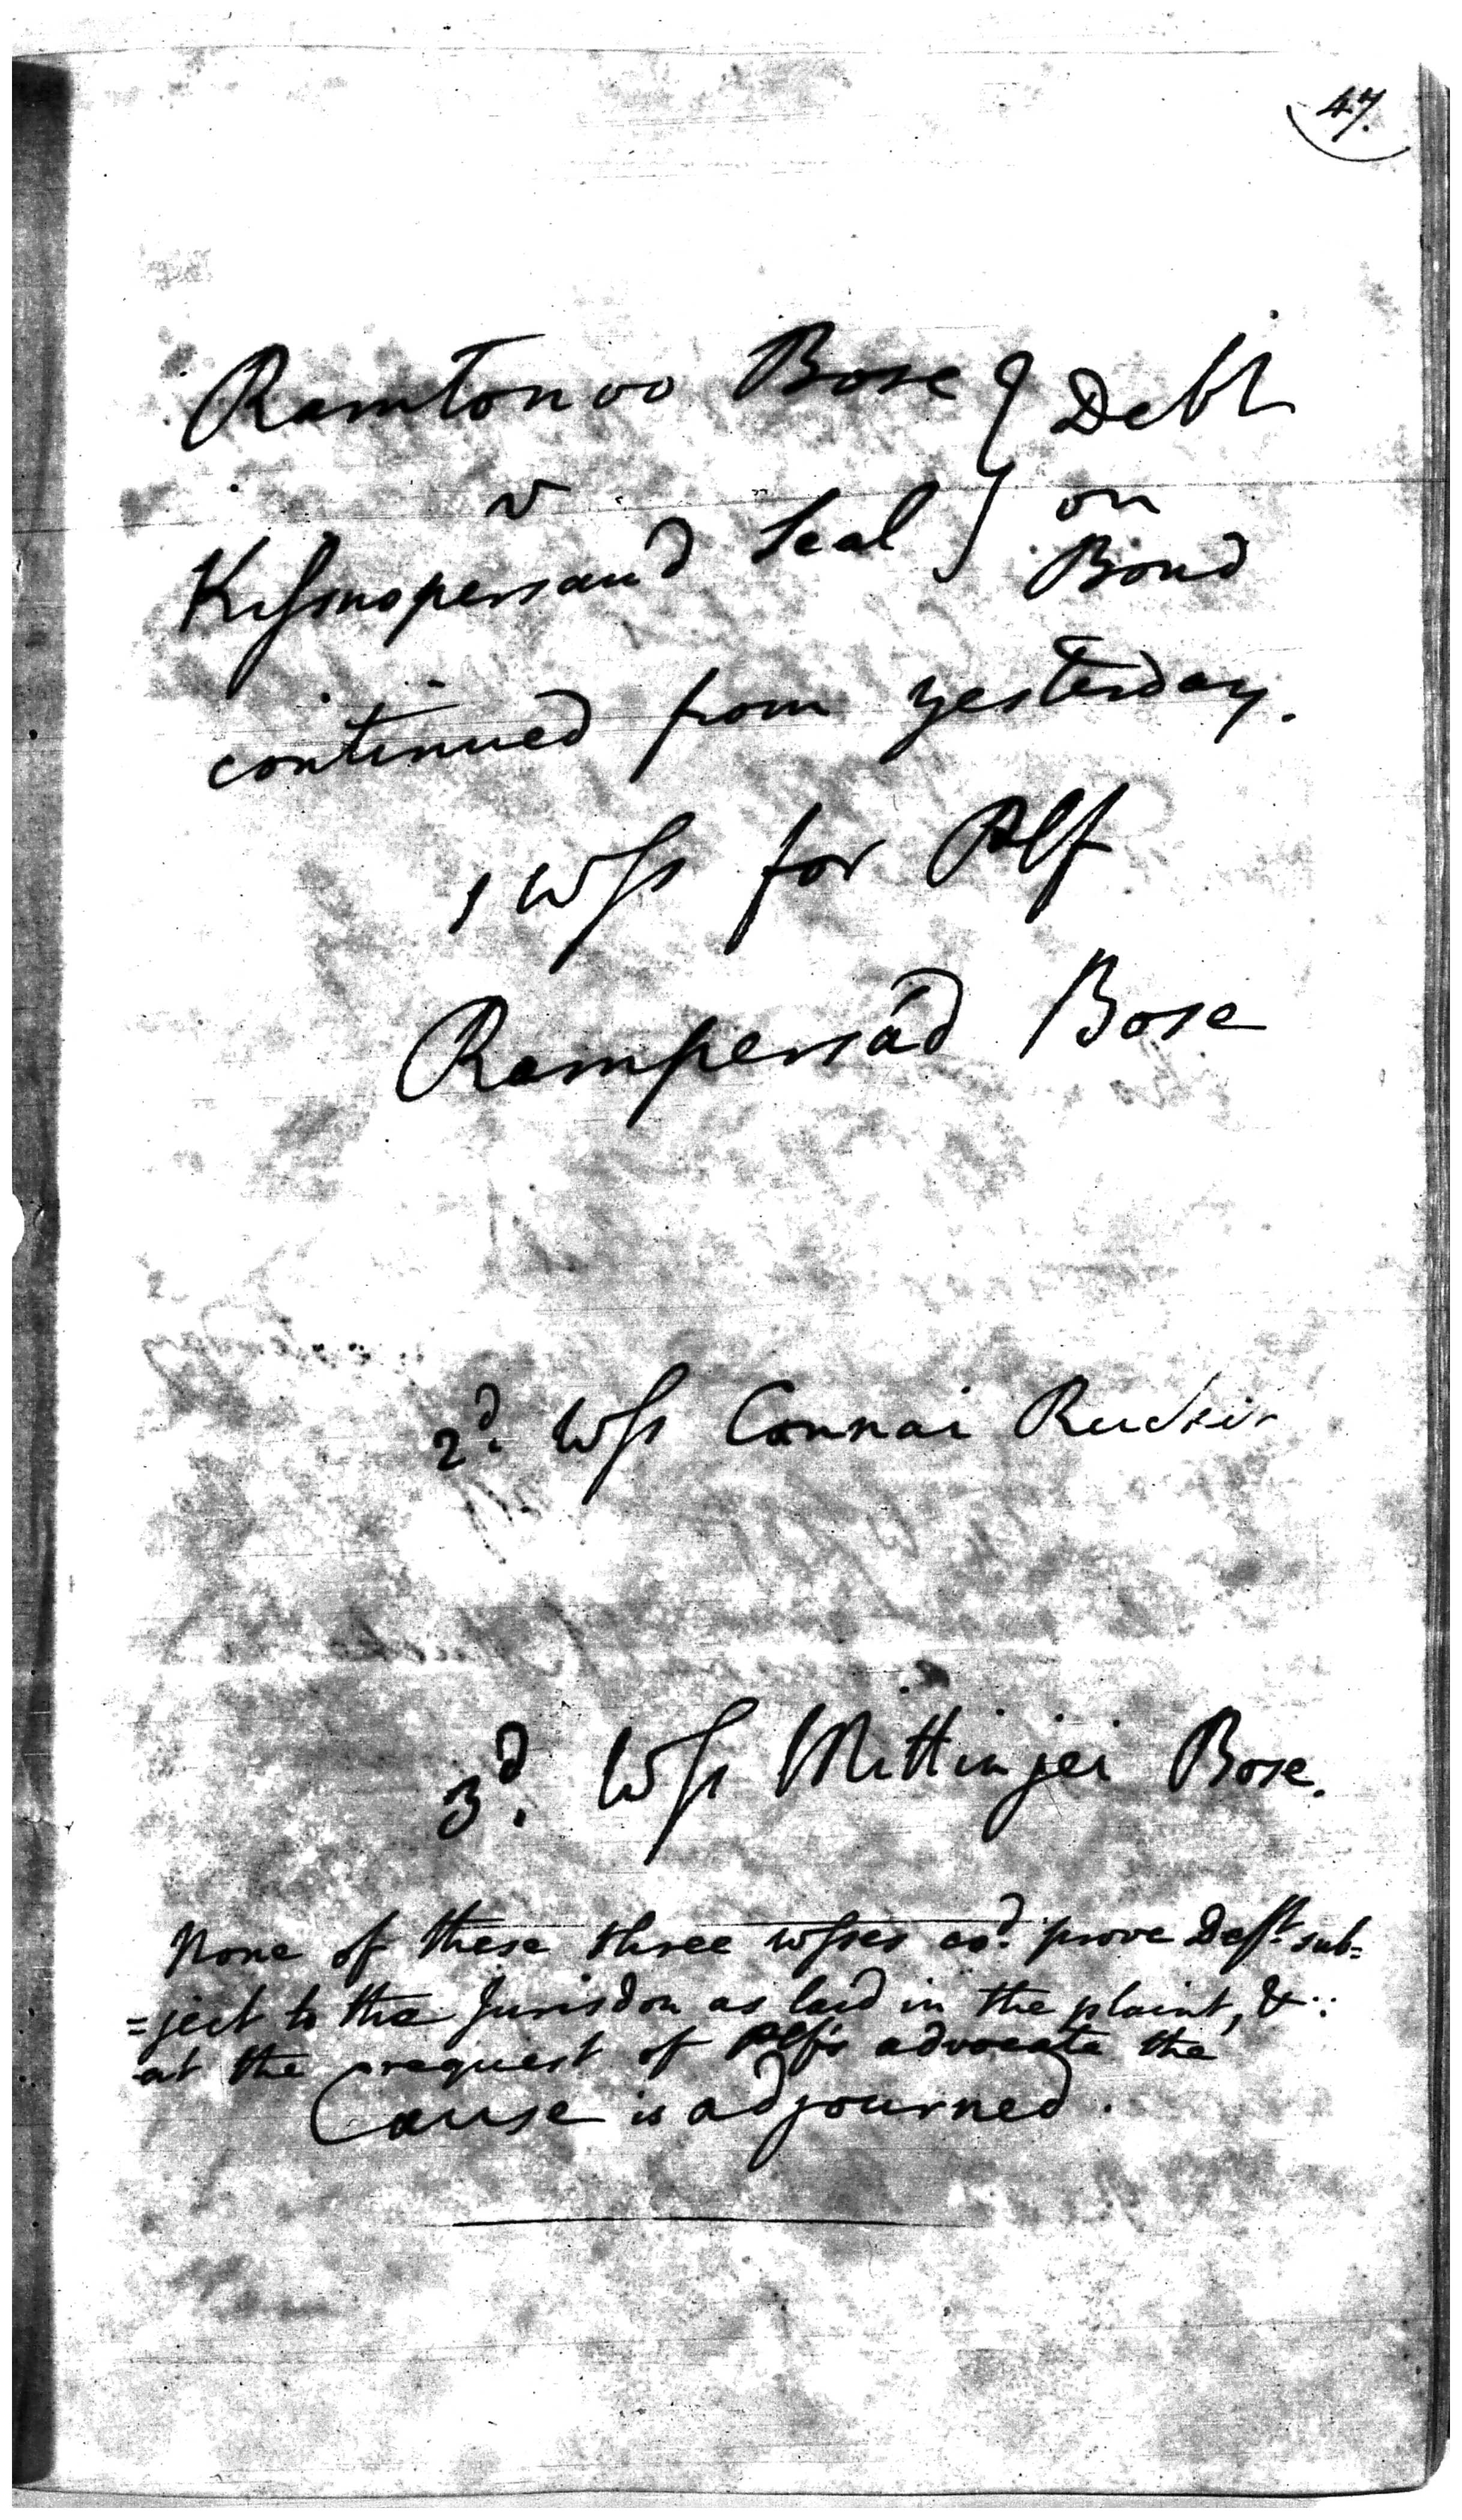 47.
Ramtonoo Bose } Debt
v } on
Kissnopersaud Seal } Bond
continued from yesterday.
1 Wss for Plf
Rampersad Bose
2d. Wss Connai Rucker
3d. Wss Mittinjei Bose.
None of these three wsses cod. prove Deft. sub=
=ject to the Jurisdon as laid in the plaint, &
at the request of Plf's advocate the
Cause is adjourned.